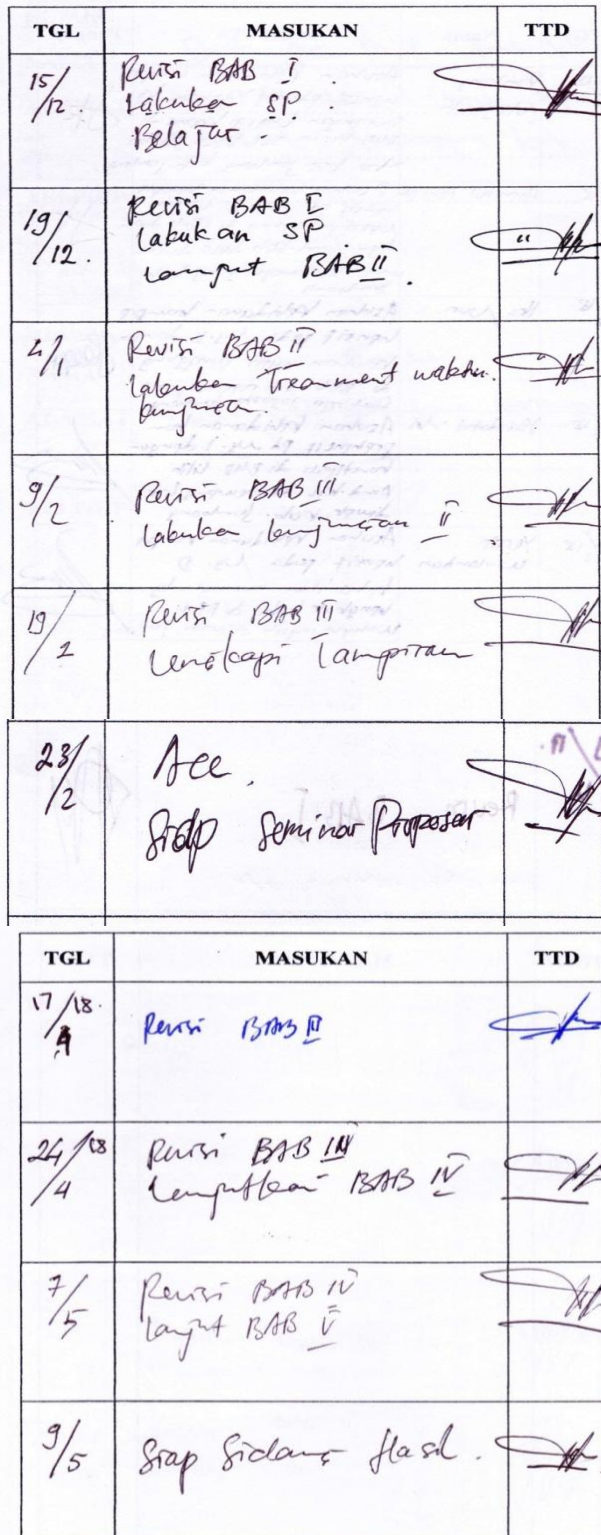 TGL MASUKAN TTD
15/12 Revisi BAB I
Lakukan SP
Belajar.
19/12. Revisi BAB I
Lakukan SP
Lanjut BAB II.
2/1 Revisi BAB II
Lakukan Treatment waktu.
kunjungan
9/2 Revisi BAB III
Lakukan kunjungan II
19/2 Revisi BAB III
Lengkapi Lampiran
23/2 Acc.
Siap Seminar Proposal
TGL MASUKAN TTD
17/18. 4 Revisi BAB III
24/18 /4 Revisi BAB III
Lanjutkan BAB IV
7/5 Revisi BAB IV
Lanjut BAB V
9/5 Siap Sidang Hasil.